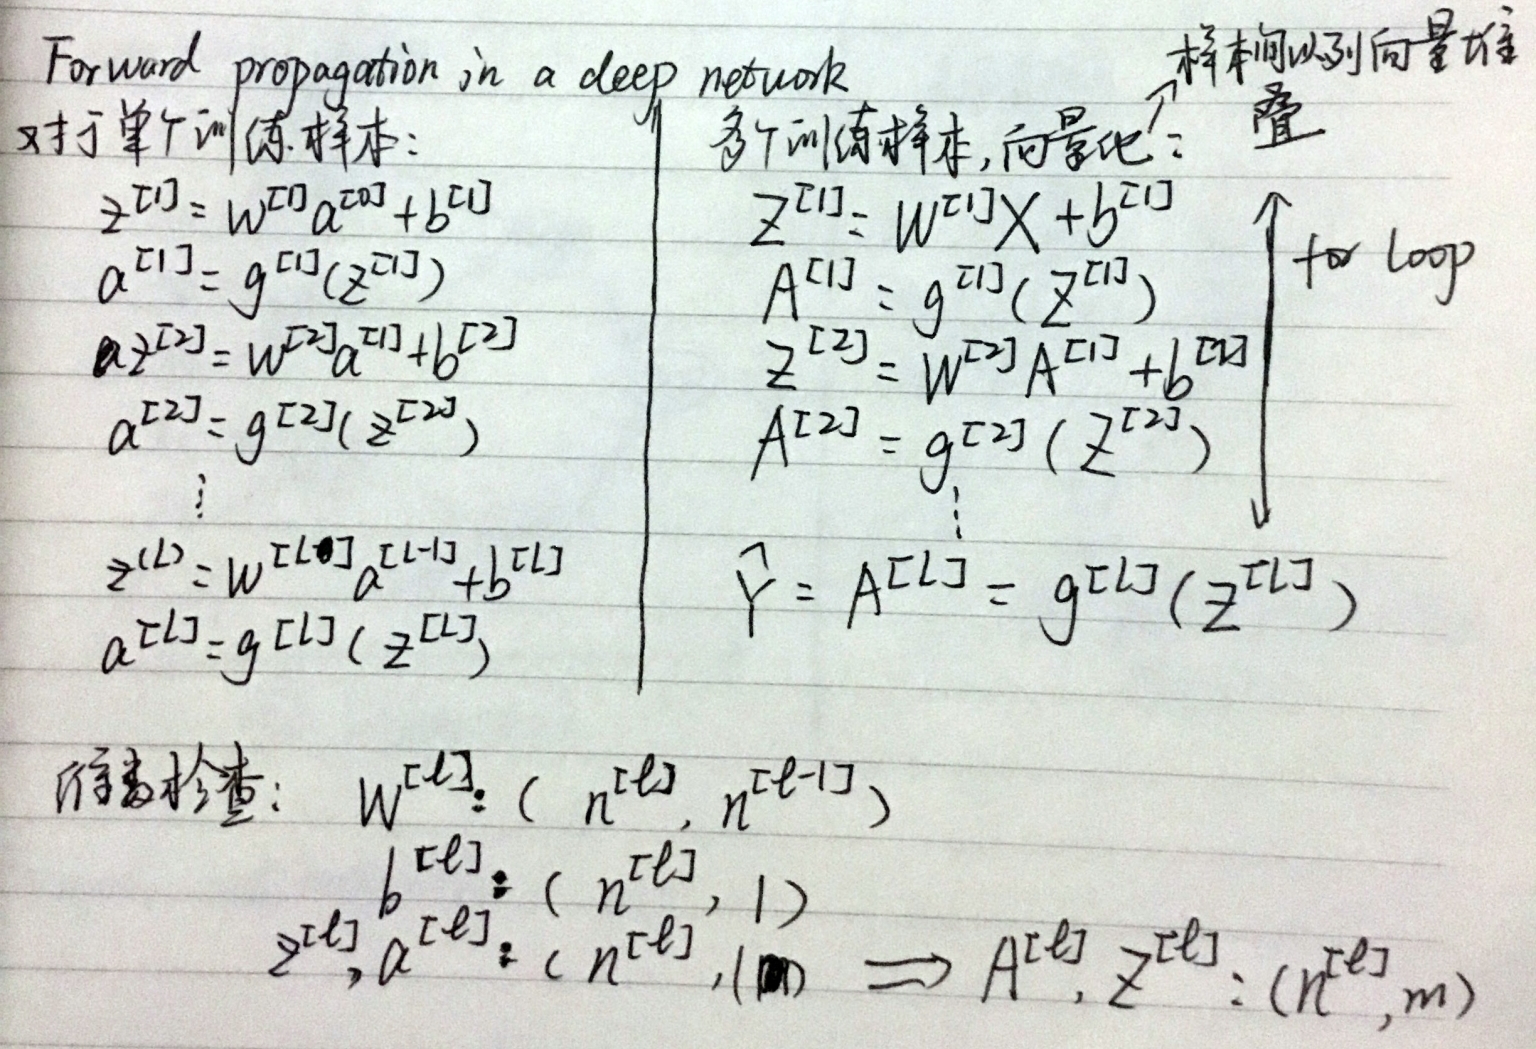 Forward propagation in a deep network
对于单个训练样本:
z^[1] = w^[1] a^[0] + b^[1]
a^[1] = g^[1](z^[1])
z^[2] = w^[2] a^[1] + b^[2]
a^[2] = g^[2](z^[2])
⋮
z^(L) = w^[L] a^[L-1] + b^[L]
a^[L] = g^[L](z^[L])
样本间以列向量堆
叠
多个训练样本,向量化:
Z^[1] = W^[1] X + b^[1]
A^[1] = g^[1](Z^[1])
Z^[2] = W^[2] A^[1] + b^[2]
A^[2] = g^[2](Z^[2])
⋮
Ŷ = A^[L] = g^[L](Z^[L])
for loop
维数检查:
W^[l]: (n^[l], n^[l-1])
b^[l]: (n^[l], 1)
z^[l], a^[l]: (n^[l], 1) ⇒ A^[l], Z^[l]: (n^[l], m)